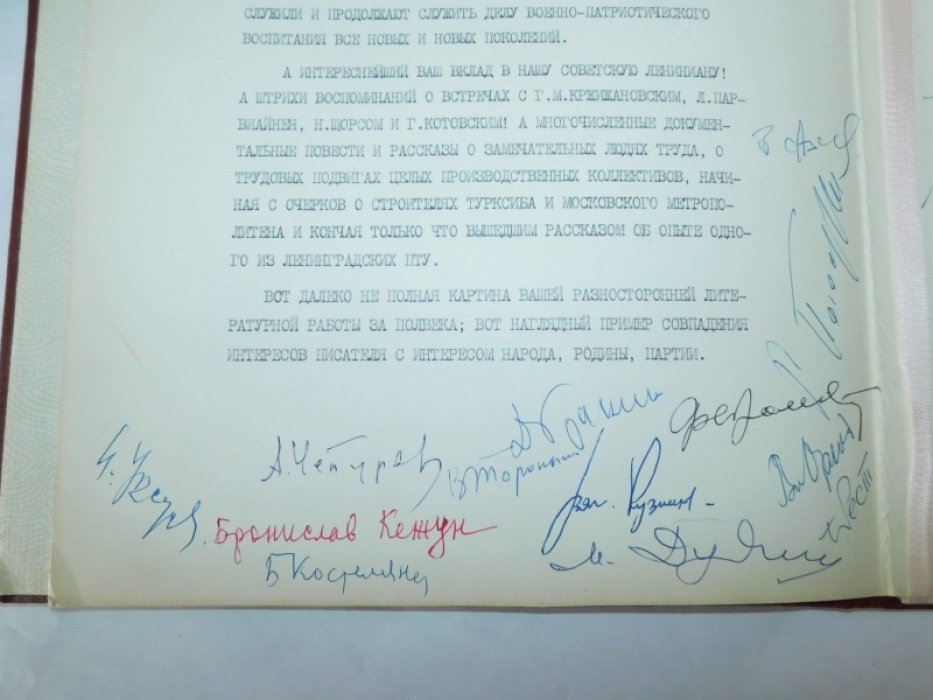 СЛУЖИЛИ И ПРОДОЛЖАЮТ СЛУЖИТЬ ДЕЛУ ВОЕННО-ПАТРИОТИЧЕСКОГО
ВОСПИТАНИЯ ВСЕ НОВЫХ И НОВЫХ ПОКОЛЕНИЙ.
А ИНТЕРЕСНЕЙШИЙ ВАШ ВКЛАД В НАШУ СОВЕТСКУЮ ЛЕНИНИАНУ!
А ШТРИХИ ВОСПОМИНАНИЙ О ВСТРЕЧАХ С Г.М.КРЖИЖАНОВСКИМ, Л.ПАР-
ВИАЙНЕН, Н.ЩОРСОМ И Г.КОТОВСКИМ! А МНОГОЧИСЛЕННЫЕ ДОКУМЕН-
ТАЛЬНЫЕ ПОВЕСТИ И РАССКАЗЫ О ЗАМЕЧАТЕЛЬНЫХ ЛЮДЯХ ТРУДА, О
ТРУДОВЫХ ПОДВИГАХ ЦЕЛЫХ ПРОИЗВОДСТВЕННЫХ КОЛЛЕКТИВОВ, НАЧИ-
НАЯ С ОЧЕРКОВ О СТРОИТЕЛЯХ ТУРКСИБА И МОСКОВСКОГО МЕТРОПО-
ЛИТЕНА И КОНЧАЯ ТОЛЬКО ЧТО ВЫШЕДШИМ РАССКАЗОМ ОБ ОПЫТЕ ОДНО-
ГО ИЗ ЛЕНИНГРАДСКИХ ПТУ.
ВОТ ДАЛЕКО НЕ ПОЛНАЯ КАРТИНА ВАШЕЙ РАЗНОСТОРОННЕЙ ЛИТЕ-
РАТУРНОЙ РАБОТЫ ЗА ПОЛВЕКА; ВОТ НАГЛЯДНЫЙ ПРИМЕР СОВПАДЕНИЯ
ИНТЕРЕСОВ ПИСАТЕЛЯ С ИНТЕРЕСОМ НАРОДА, РОДИНЫ, ПАРТИИ.
А.Чепуров
Бронислав Кежун
Б Костелянец